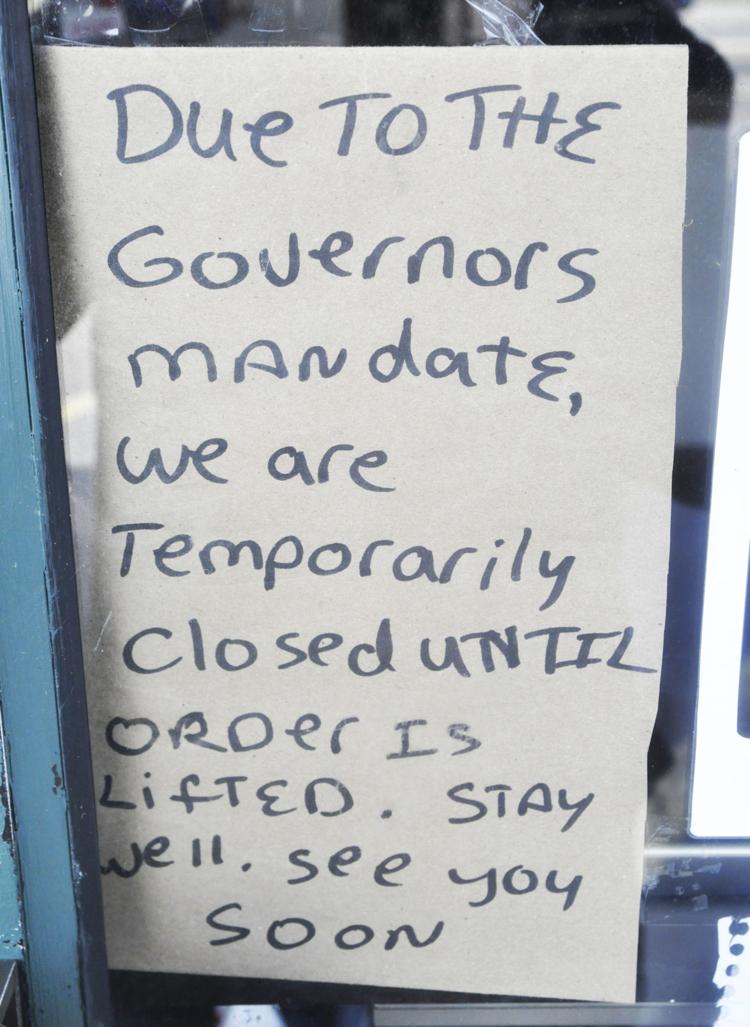 Due TO THE
Governors
mANdatE,
we are
Temporarily
Closed uNTIL
ORDer Is
LifTED. STAy
well. see you
SOON